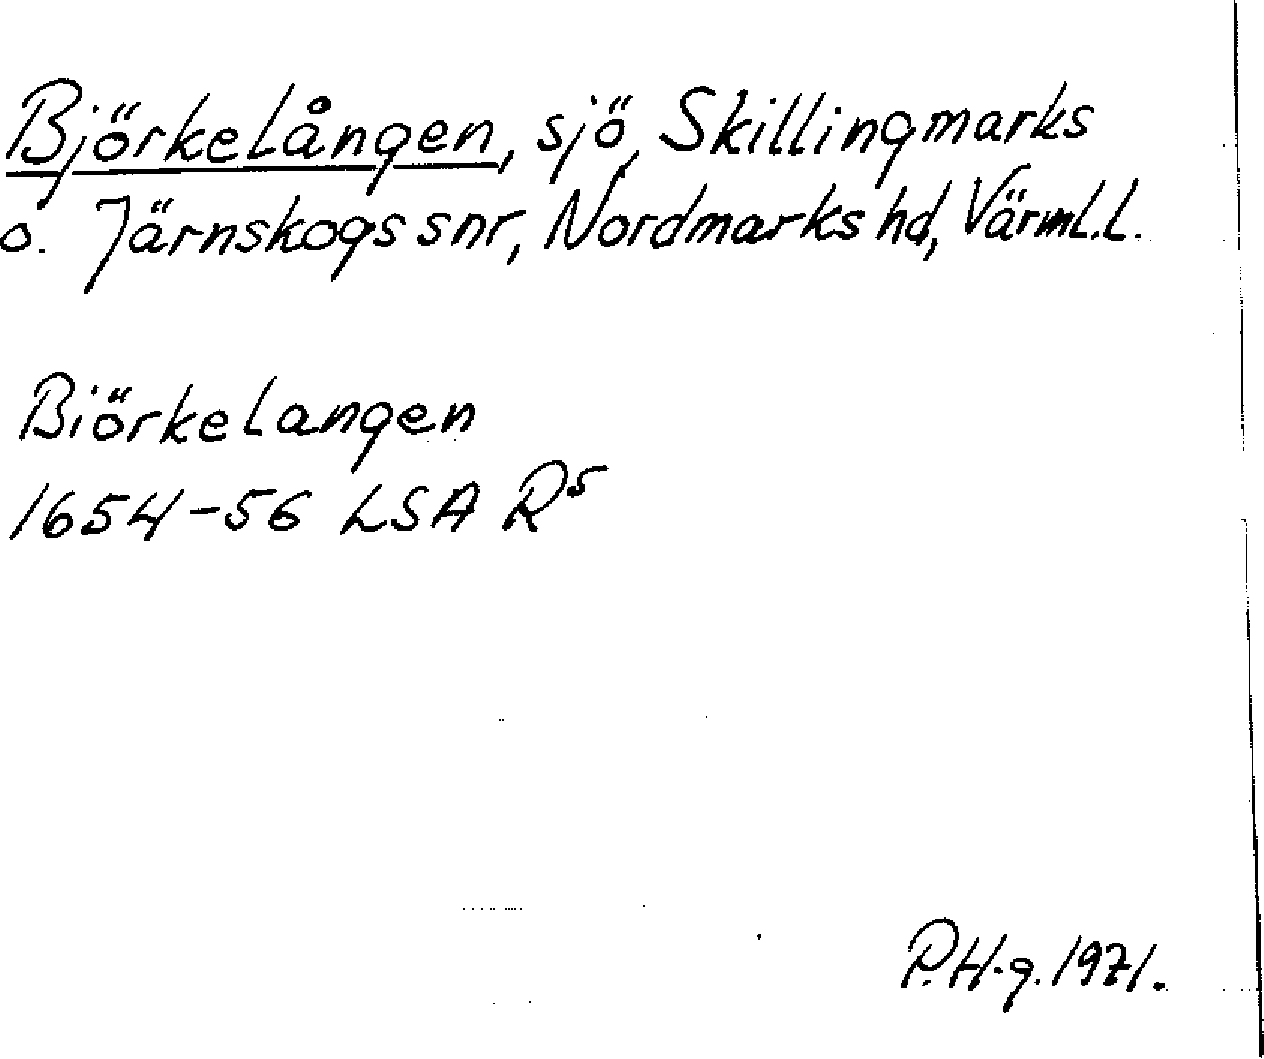 Björkelången, sjö, Skillingmarks
o. Järnskogs snr, Nordmarks hd, Värml.l.
Biörkelangen
1654-56 LSA R⁵
P.H-g. 1971.